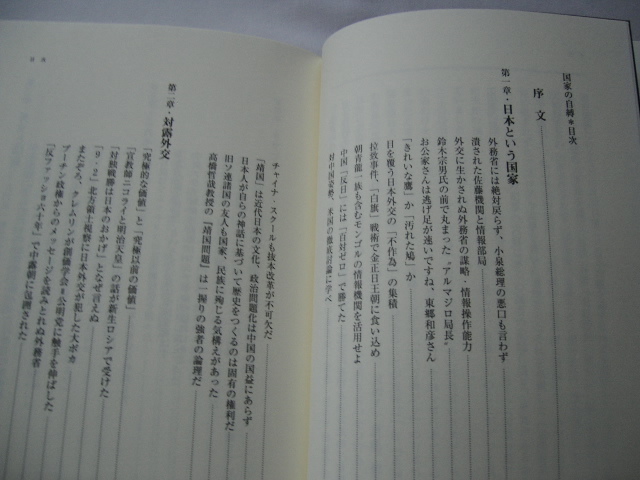 国家の自縛＊目次
序文
第一章・日本という国家
外務省には絶対戻らず、小泉総理の悪口も言わず
潰された佐藤機関と情報部局
外交に生かされぬ外務省の謀略・情報操作能力
鈴木宗男氏の前で丸まった“アルマジロ局長”
お公家さんは逃げ足が速いですね、東郷和彦さん
「きれいな鷹」か「汚れた鳩」か
目を覆う日本外交の「不作為」の集積
拉致事件、「白旗」戦術で金正日王朝に食い込め
朝青龍一族も含むモンゴルの情報機関を活用せよ
中国「反日」には「百対ゼロ」で勝てた
対中国姿勢、米国の徹底討論に学べ
目次
チャイナ・スクールも抜本改革が不可欠だ
「靖国」は近代日本の文化、政治問題化は中国の国益にあらず
日本人が自らの神話に基づいて歴史をつくるのは固有の権利だ
旧ソ連諸国の友人も国家、民族に殉じる気構えがあった
高橋哲哉教授の『靖国問題』は一握りの強者の論理だ
第二章・対露外交
「究極的な価値」と「究極以前の価値」
「宣教師ニコライと明治天皇」の話が新生ロシアで受けた
「対独戦勝は日本のおかげ」となぜ言えぬ
「9・2」北方領土視察に日本外交が犯した大ポカ
またぞろ、クレムリンが創価学会＝公明党に触手を伸ばした
プーチン政権からのメッセージを読みとれぬ外務省
「反ファッショ六十年」で中露朝に包囲された